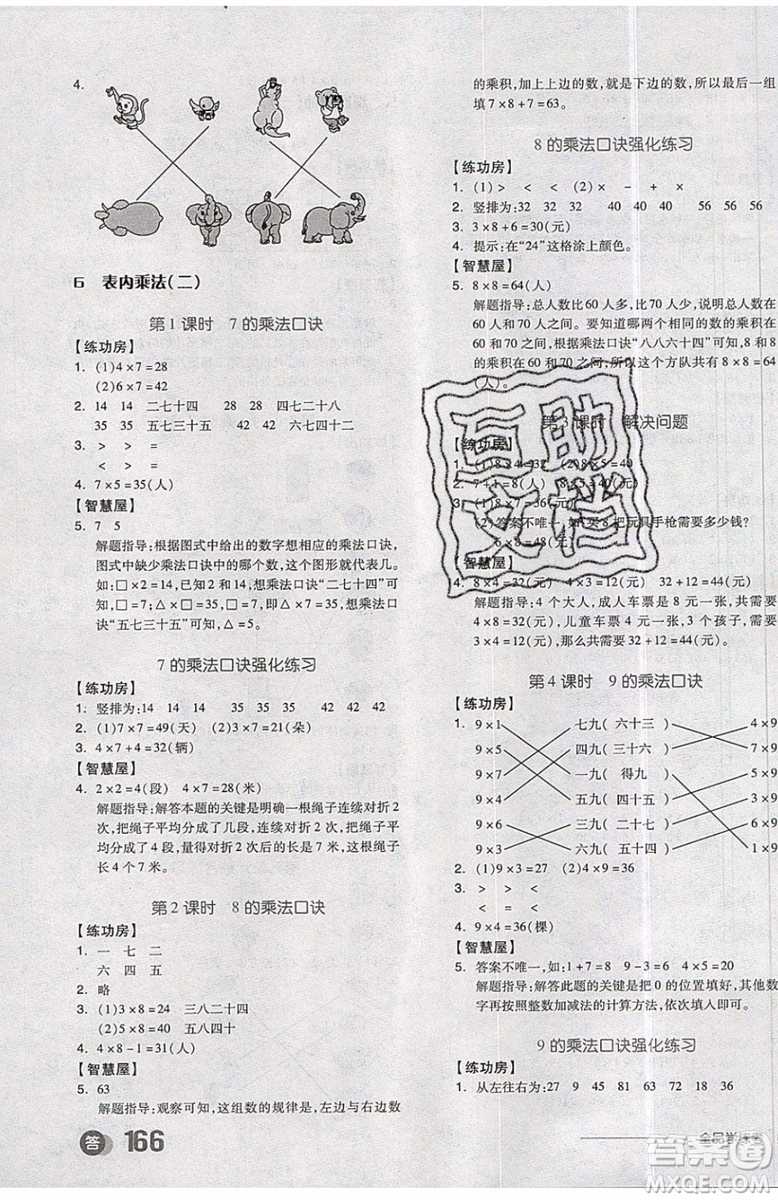 4.
6 表内乘法(二)
第1课时 7的乘法口诀
【练功房】
1. (1)4×7=28
(2)6×7=42
2. 14 14 二七十四 28 28 四七二十八
35 35 五七三十五 42 42 六七四十二
3. > > >
< = =
4. 7×5=35(人)
【智慧屋】
5. 7 5
解题指导:根据图式中给出的数字想相应的乘法口诀,
图式中缺少乘法口诀中哪个数,这个图形就代表几。
如:□×2=14,想乘法口诀“二七十四”可知,□=7。
想乘法口诀“五七三十五”可知,△=5。
7的乘法口诀强化练习
【练功房】
1. 竖排为:14 14 14 35 35 35 42 42
2. (1)7×7=49(天) (2)3×7=21(朵)
3. 4×7+4=32(辆)
【智慧屋】
4. 2×2=4(段) 4×7=28(米)
解题指导:解答本题的关键是明确一根绳子连续对折2
次,把绳子平均分成了几段,连续对折2次,把绳子平
均分成了4段,所以就是求4个7米是多少米。这根绳子
长4个7米。
第2课时 8的乘法口诀
【练功房】
1. 一 七 二
六 四 五
2. 略
3. (1)3×8=24 三八二十四
(2)5×8=40 五八四十
4. 4×8-1=31(人)
【智慧屋】
5. 63
解题指导:观察可知,这组数的规律是,左边与右边数
答 166
的乘积,加上上边的数,就是下边的数,所以最后一组
填7×8+7=63。
8的乘法口诀强化练习
【练功房】
1. (1)> < < (2)× - + ×
2. 竖排为:32 32 32 40 40 40 56 56
3. 3×8+6=30(元)
4. 提示:在“24”这格涂上颜色。
【智慧屋】
5. 8×8=64(人)
解题指导:总人数比60人多,比70人少,说明总人数在
60人和70人之间。要知道哪两个相同的数的乘积在
60和70之间,根据乘法口诀“八八六十四”可知8×8=64
的乘积在60和70之间,所以这个方队共有8×8=64
(人)。
第3课时 解决问题
【练功房】
1. (1)8×4=32 (2)8×5=40
2. 7+1=8 7×8=56
3. (1)9×4=36(元)
(2)答案不唯一,如:买8把玩具手枪需要多少钱?
6×8=48(元)
【智慧屋】
4. 8×4=32(元) 4×3=12(元) 32+12=44(元)
解题指导:4个大人,成人车票是8元一张,共需要
4×8=32(元),儿童车票4元一张,3个孩子,需要
4×3=12(元),那么共需要32+12=44(元)。
第4课时 9的乘法口诀
【练功房】
1. 9×1 七九( 六十三 ) 4×9
9×5 四九( 三十六 ) 7×9
9×7 一九( 得九 ) 5×9
9×4 五九( 四十五 ) 3×9
9×6 三九( 二十七 ) 6×9
9×3 六九( 五十四 ) 1×9
2. (1)9×3=27 (2)9×4+4=40
3. > > >
< = <
4. 9×4=36(棵)
【智慧屋】
5. 答案不唯一,如:1+7=8 9-3=6 4×5=20
解题指导:解答此题的关键是把0的位置填好,其他数
字再按照整数加减法的计算方法,依次填入即可。
9的乘法口诀强化练习
【练功房】
1. 从左往右为:27 9 45 81 63 54 72 18 36
互助文档
答案圈
MXQE.COM